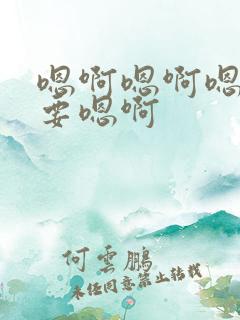 嗯啊嗯啊嗯
要嗯啊
何雲鵬
未经同意禁止转载